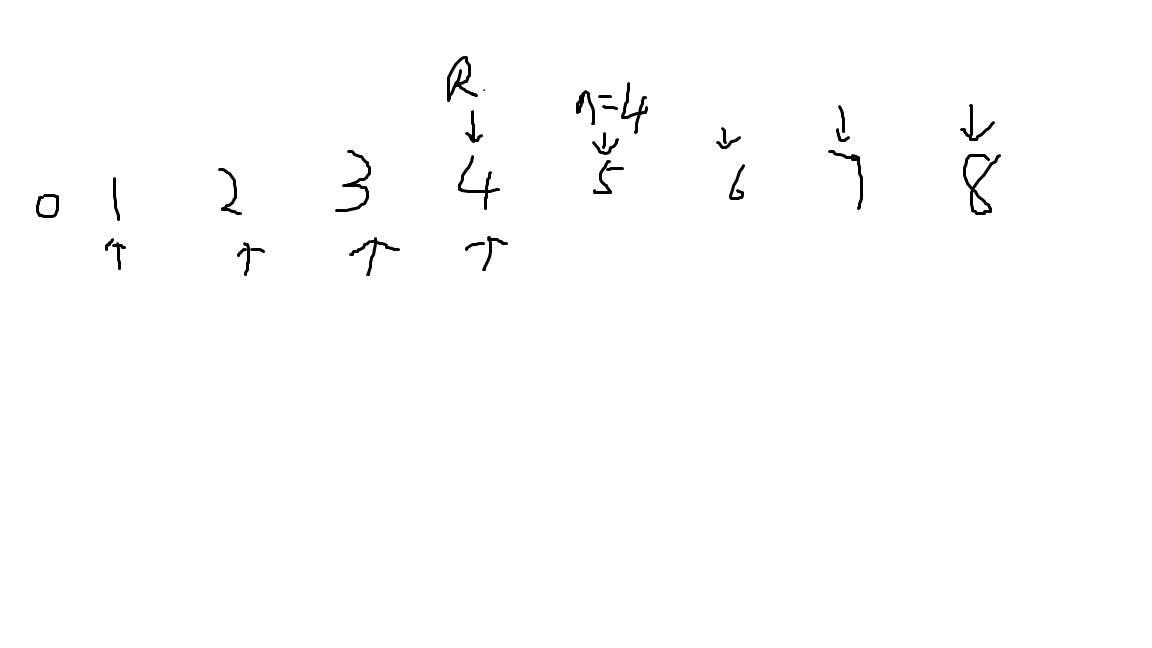 R n=4
0 1 2 3 4 5 6 7 8